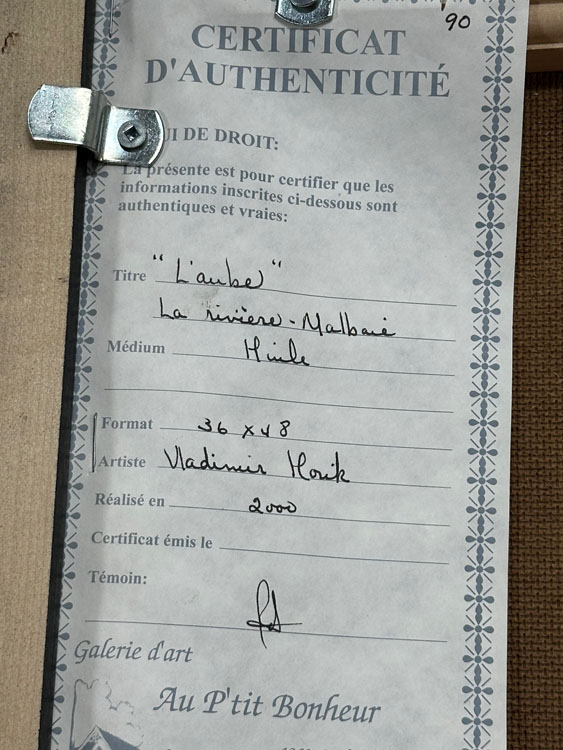 90
CERTIFICAT
D'AUTHENTICITÉ
UI DE DROIT:
La présente est pour certifier que les
informations inscrites ci-dessous sont
authentiques et vraies:
Titre "L'aube"
La rivière-Malbaie
Médium Huile
Format 36 x 48
Artiste Vladimir Horik
Réalisé en 2000
Certificat émis le
Témoin:
Galerie d'art
Au P'tit Bonheur